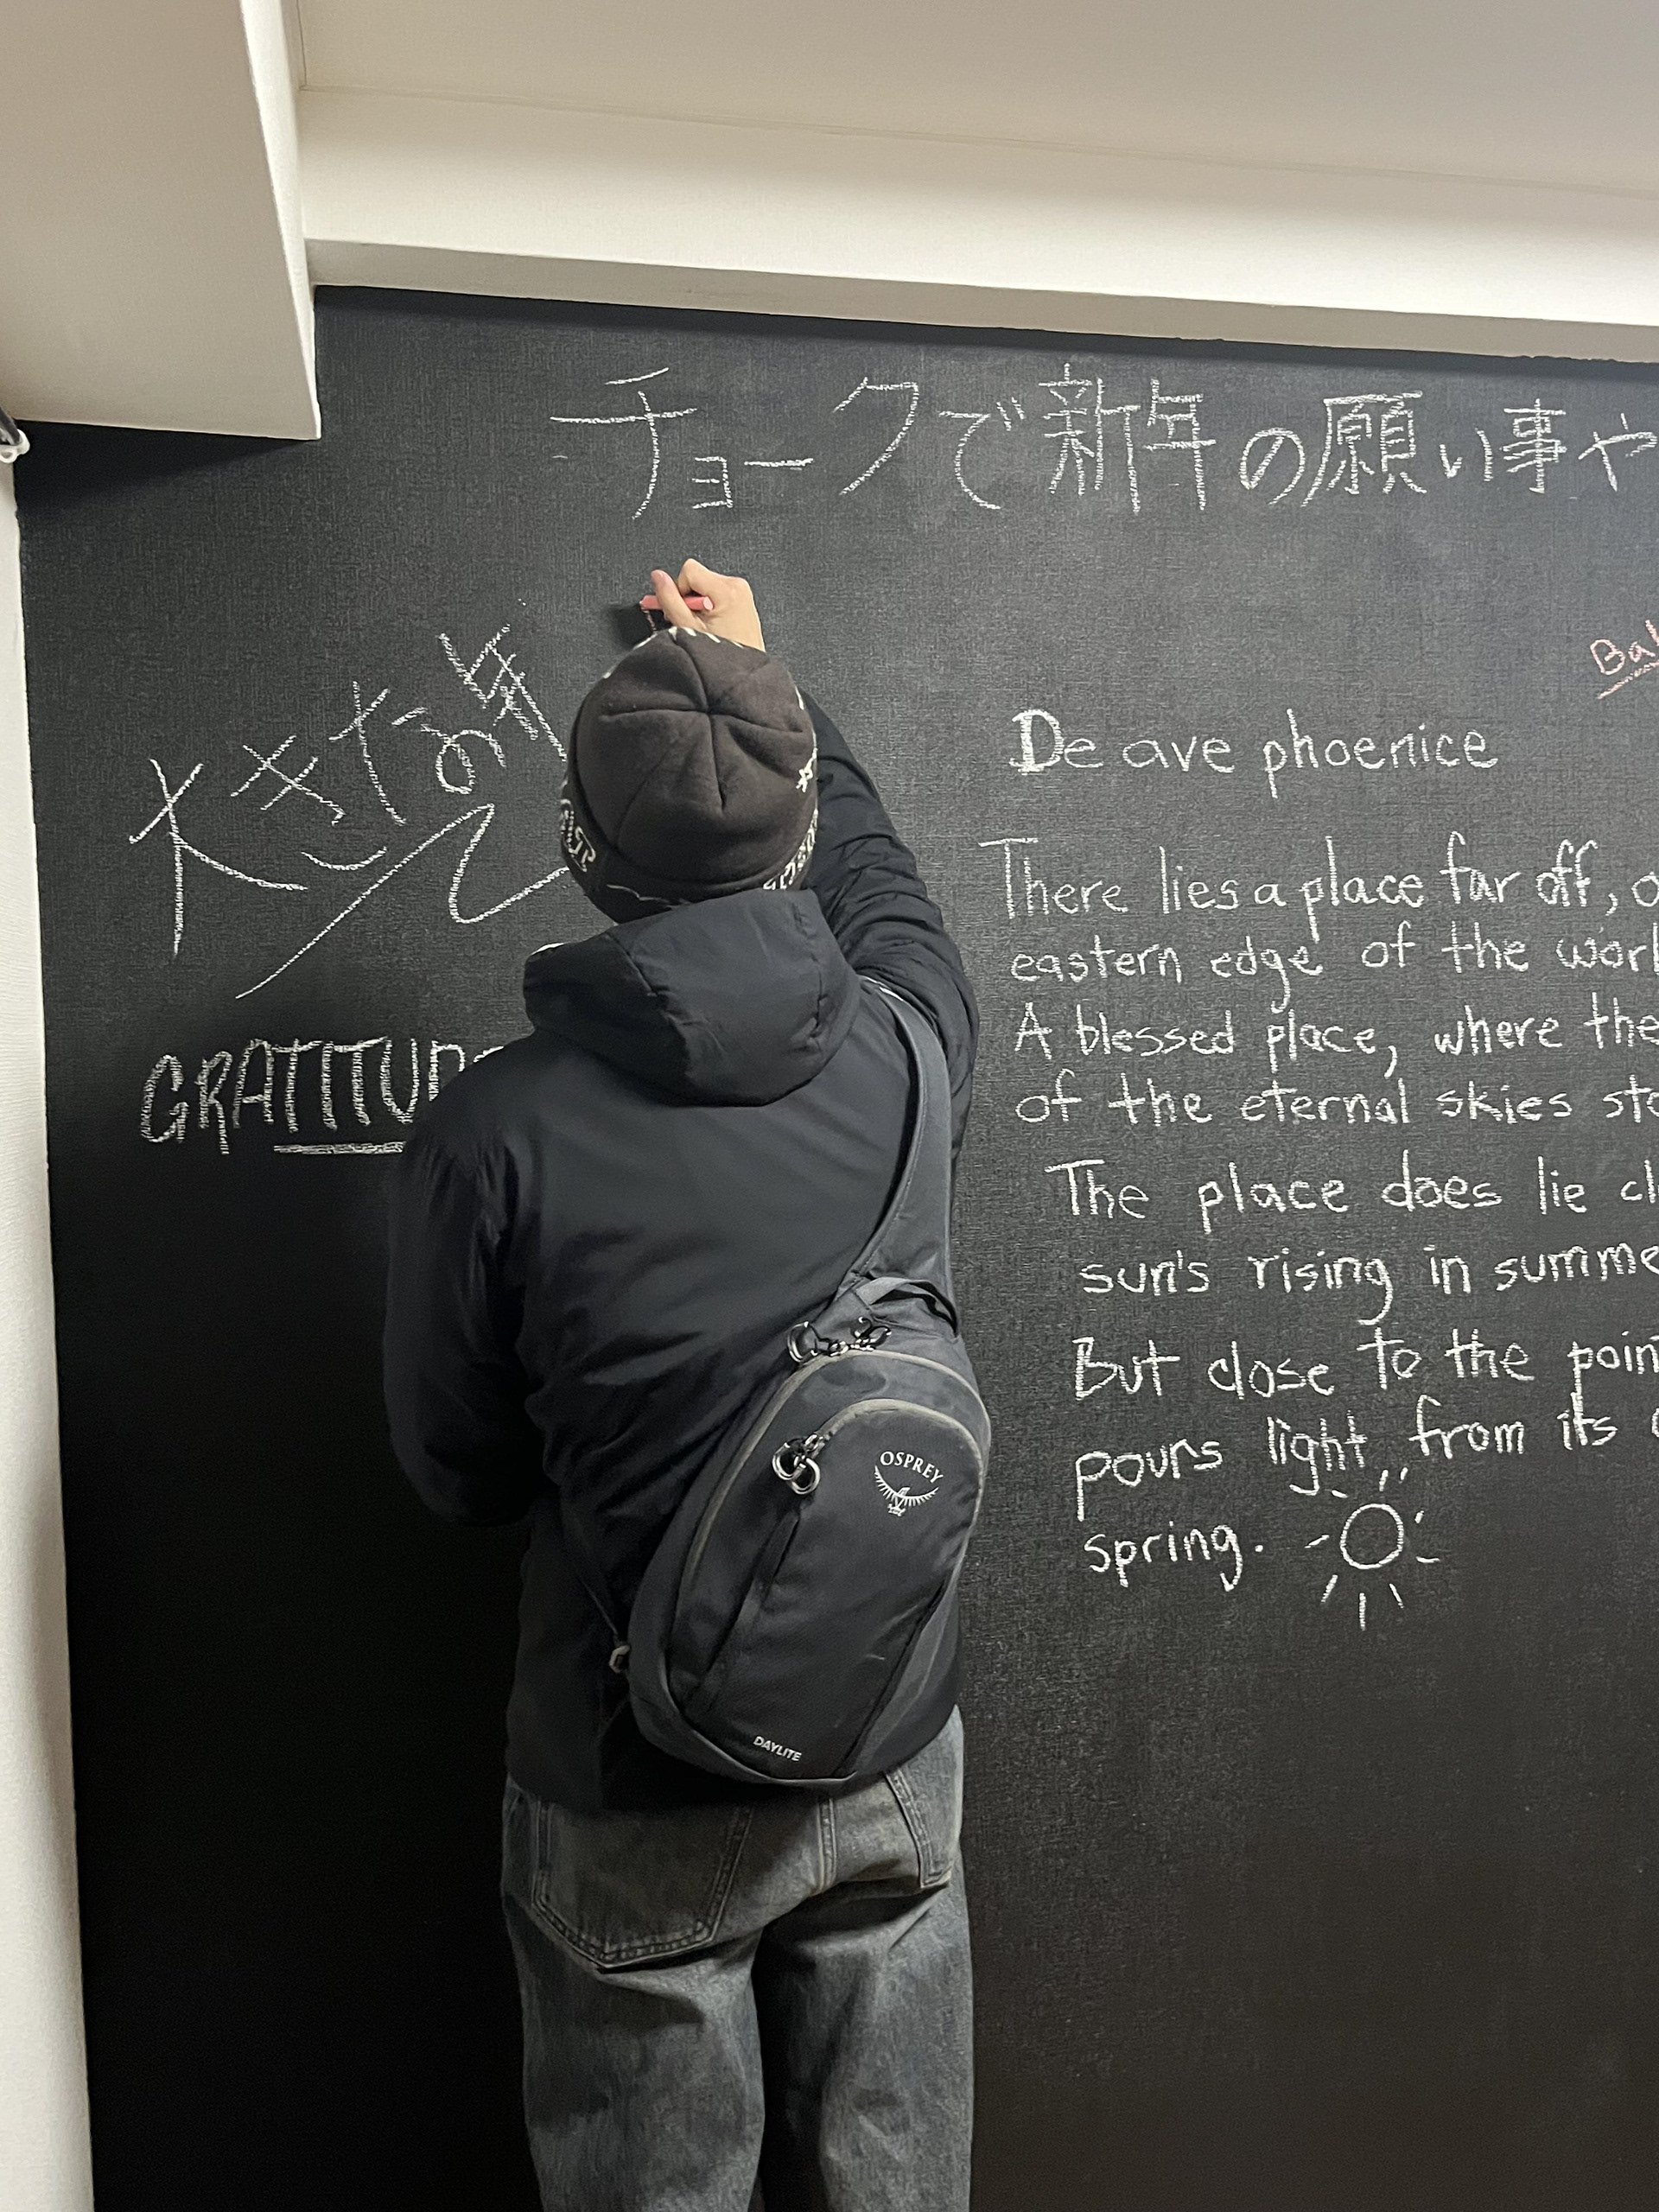 チョークで新年の願い事や
大きな
GRATITUD
De ave phoenice
There lies a place far off,
eastern edge of the worl
A blessed place, where the
of the eternal skies
The place does lie
sun's rising in summe
But close to the poin
pours light from its
spring.
OSPREY
DAYLITE